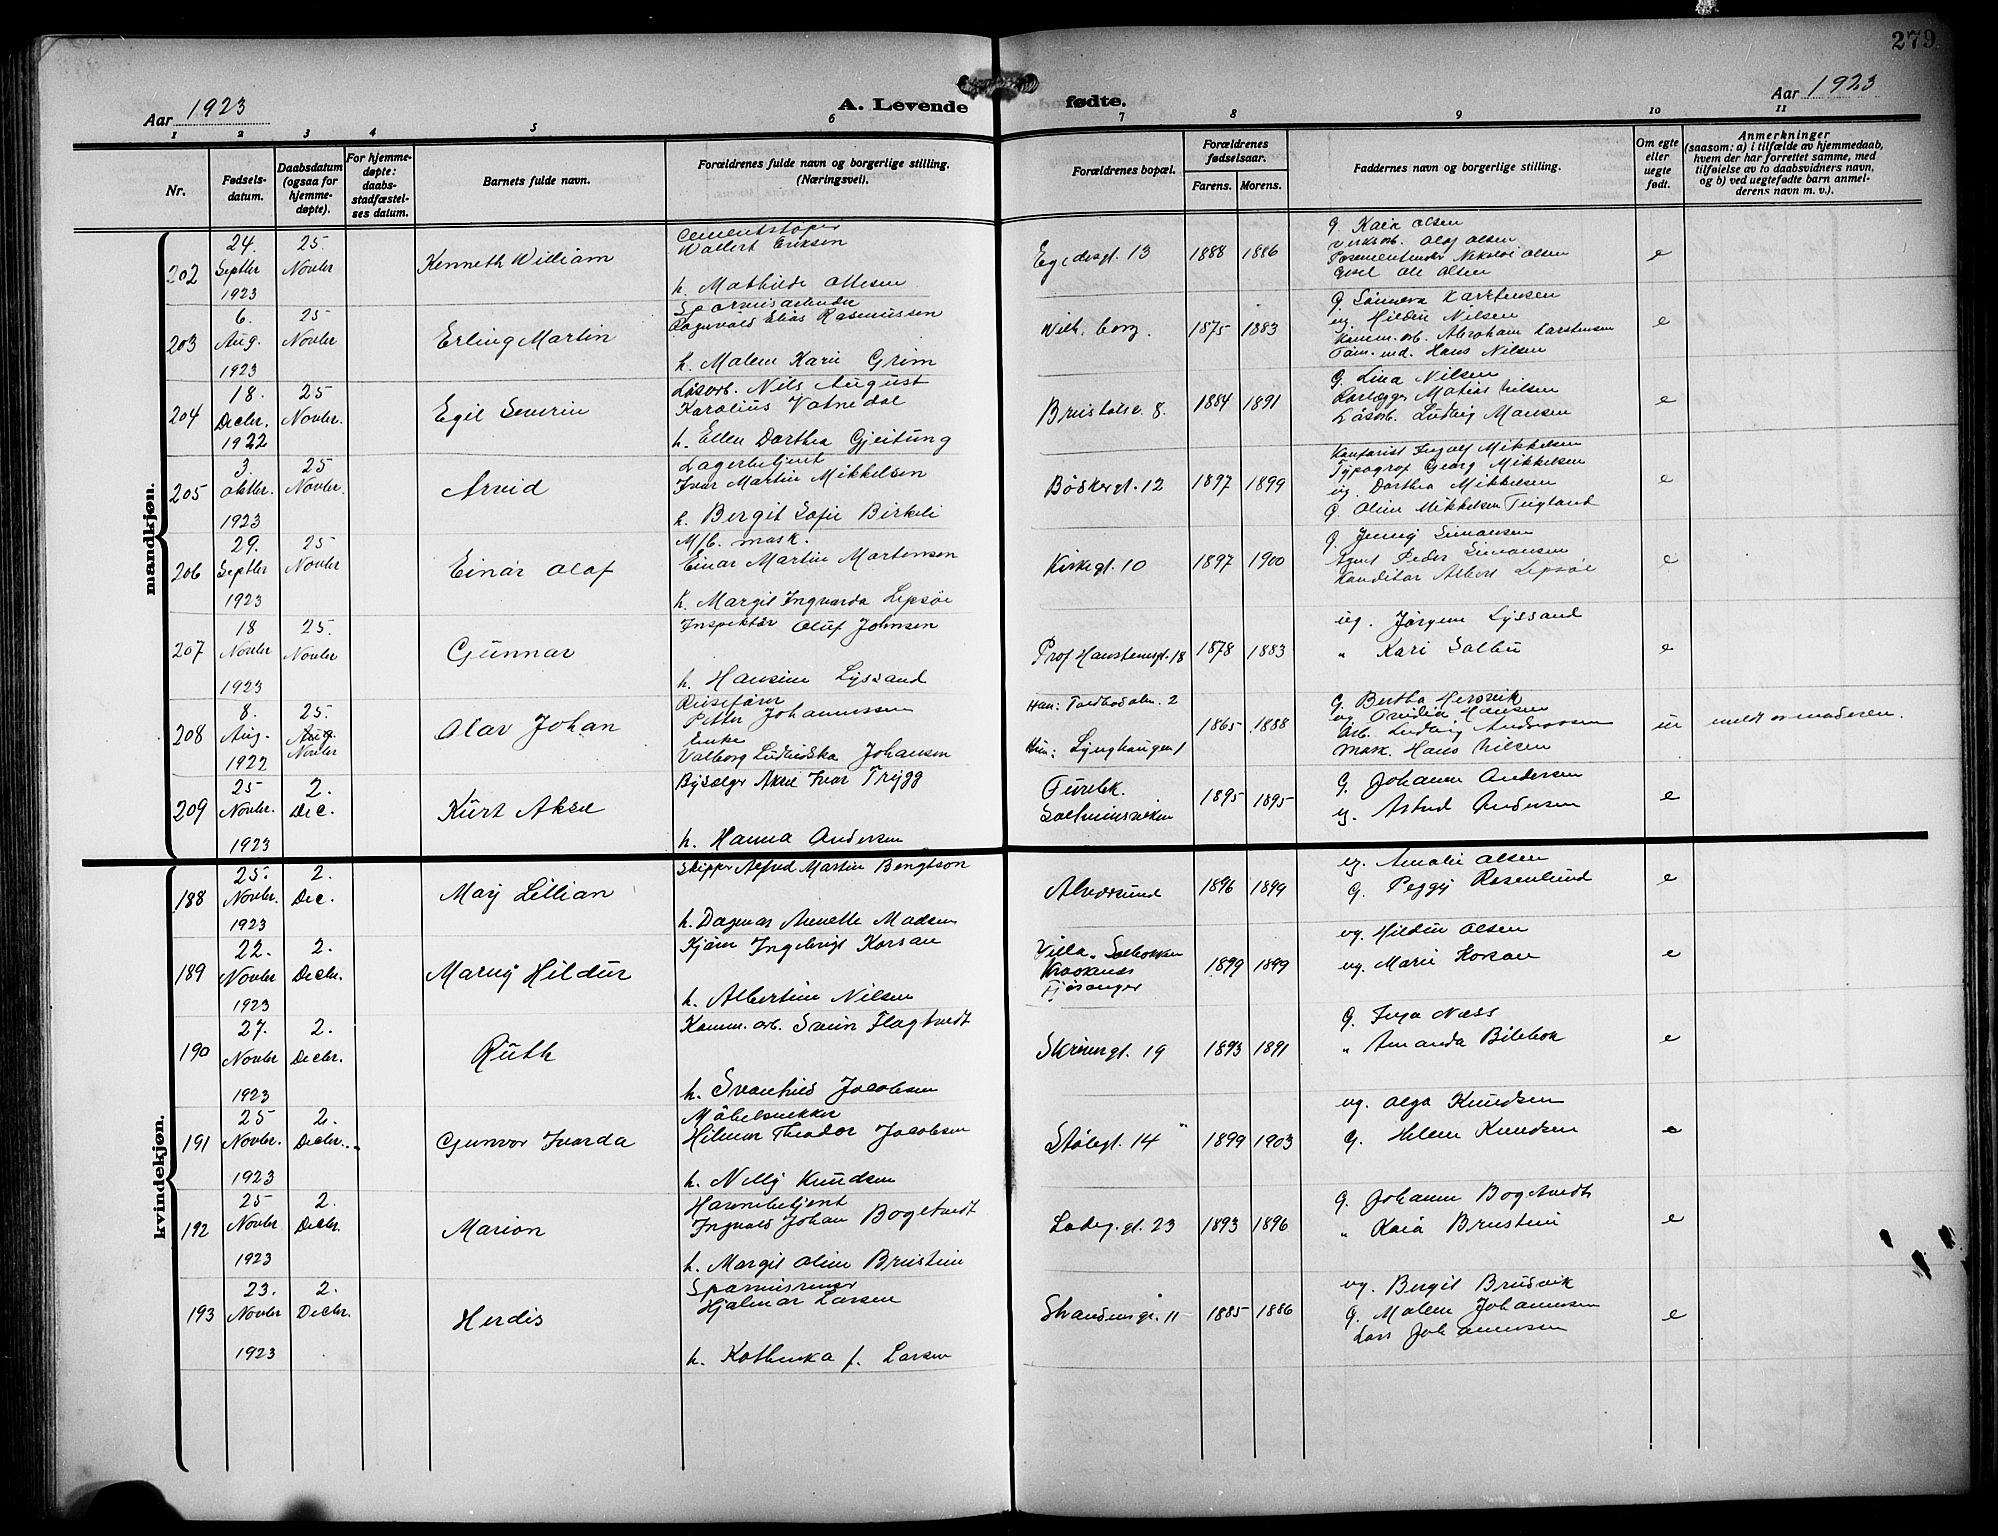 279
Aar 1923
A. Levende fødte.
Aar 1923
1 2 3 4 5 6 7 8 9 10 11
Nr.
Fødsels-
datum.
Daabsdatum
(ogsaa for
hjemme-
døpte).
For hjemme-
døpte:
daabs-
stadfæstel-
ses datum.
Barnets fulde navn.
Forældrenes fulde navn og borgerlige stilling.
(Næringsvei).
Forældrenes bopæl.
Forældrenes
fødselsaar.
Farens. Morens.
Faddernes navn og borgerlige stilling.
Om egte
eller
uegte
født.
Anmerkninger
(saasom: a) i tilfælde av hjemmedaab,
hvem der har forrettet samme, med
tilføielse av to daabsvidners navn,
og b) ved uegtefødte barn anmel-
derens navn m. v.).
mandkjøn.
202
24.
Septbr
1923
25.
Novbr
Kenneth William
Cementstøper
Wallert Eriksen
h. Mathilde Ottesen
Egedesgt. 13
1888 1886
G. Kaia Olsen
Verksarb. Olaf Olsen
Nikolai Olsen
Ole Olsen
e
203
6.
Aug.
1923
25
Novbr
Erling Martin
Sporveisarbeider
Ragnvald Elias Rasmussen
h. Malene Karie Grim
1875 1883
G. Karstensen
ug. Hildur Nilsen
Komm. arb. Abraham Karstensen
Tøm. md. Hans Nilsen
e
204
18.
Decbr.
1922
25
Novbr.
Egil Severin
Løsarb. Nils August
Karolius Vatnedal
h. Ellen Dorthea Gjeitung
1884 1891
G. Lina Nilsen
Rørlegger Matias Nilsen
Løsarb. Ludvig Monsen
e
205
3.
Oktbr.
1923
25
Novbr.
Arvid
Lagerbetjent
Ivar Martin Mikkelsen
h. Bergit Sofie Birkeli
Bødkergt. 12
1897 1899
Kontorist Ingolf Mikkelsen
Typograf Georg Mikkelsen
ug. Dorthea Mikkelsen
G. Oline Mikkelsen Tugland
e
206
29.
Septbr
1923
25
Novbr
Einar Olaf
M/b. mask.
Einar Martin Martensen
h. Margit Ingvarda Lepsøe
Kirkegt. 10
1897 1900
G. Jenny Simonsen
Agent Peder Simonsen
Konditor Albert Lepsøe
e
207
18
Novbr
1923
25.
Novbr
Gunnar
Inspektør Oluf Johnsen
h. Hansine Lyssand
Prof Hansteensgt. 18
1878 1883
ug. Jørgine Lyssand
" Kari Solbu
e
208
8.
Aug.
1922
25.
Aug.
Novbr
Olav Johan
Reisefører
Petter Johannessen
Enke
Valborg Ludviska Johansen
Han: Toldbodalm. 2
Hun: Lynghaugen 1
1865 1888
G. Bertha Hersvik
ug. Hansen
Arb. Ludvig Andreassen
Mask. Hans Nilsen
u
meldt av moderen.
209
25
Novbr.
1923
2.
Dec.
Kurt Aksel
Bysælger Aksel Ivar Trygg
h. Hanna Andersen
1895 1895
G. Johanne Andersen
ug. Astrid Andersen
e
kvindekjøn.
188
25.
Novbr
1923
2.
Dec.
May Lillian
Skipper Alfred Martin Bengtson
h. Dagmar Annette Madsen
Alversund
1896 1899
ug. Amalie Olsen
G. Peggy Rosenlund
e
189
22.
Novbr
1923
2.
Decbr.
Marny Hildur
Kjører Ingebrigt Korsan
h. Albertine Nilsen
Villa "Solbakken
Kraakenes
Fjøsanger
1899 1899
ug. Hildur Olsen
ug. Marie Korsan
e
190
27.
Novbr
1923
2.
Decbr.
Ruth
Komm. arb. Svein Flagtvedt
h. Svanhild Jacobsen
Skrømgt. 19
1893 1891
G. Inga Næss
" Amanda
e
191
25
Novbr.
1923
2.
Decbr.
Gunvor Ivarda
Møbelsnekker
Hilmar Theodor Jacobsen
h. Nelly Knudsen
Stølegt. 14
1899 1903
ug. Olga Knudsen
G. Helene Knudsen
e
192
25
Novbr
1923
2.
Decbr.
Marion
Havnebetjent
Ingvald Johan Bogetvedt
h. Margit Oline Breistein
Ladeg. gt. 23
1893 1896
G. Johanne Bogetvedt
" Kaia Breistein
e
193
23.
Novbr
1923
2.
Decbr.
Herdis
Hjalmar Larsen
h. Kathinka f. Larsen
1885 1886
ug. Bergit Brudvik
G. Malene Johannesen
Lars Johannesen
e